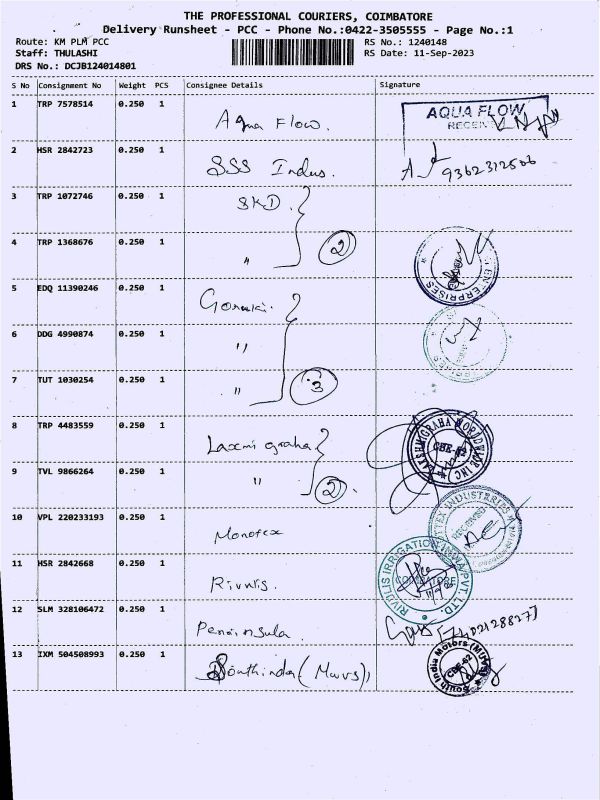 THE PROFESSIONAL COURIERS, COIMBATORE
Delivery Runsheet - PCC - Phone No.:0422-3505555 - Page No.:1
Route: KM PLM PCC RS No.: 1240148
Staff: THULASHI RS Date: 11-Sep-2023
DRS No.: DCJB124014801
S No Consignment No Weight PCS Consignee Details Signature
1 TRP 7578514 0.250 1 Aqua Flow. AQUA FLOW
2 HSR 2842723 0.250 1 SSS Indus.
3 TRP 1072746 0.250 1 SKD.
4 TRP 1368676 0.250 1 " 2 ENTERPRISES
5 EDQ 11390246 0.250 1
6 DDG 4990874 0.250 1 "
7 TUT 1030254 0.250 1 " 3
8 TRP 4483559 0.250 1 Laxmi graha LAKSHMIGRAHA WORLDWIDE INC CBE-62
9 TVL 9866264 0.250 1 " 2
10 VPL 220233193 0.250 1 Monotex INDUSTERIES RECEIVED
11 HSR 2842668 0.250 1 Rivulis. RIVULIS IRRIGATION INDIA PVT. LTD. COIMBATORE
12 SLM 328106472 0.250 1 Peninsula.
13 IXM 504508993 0.250 1 South India (Muvs) South India Motors CBE-62